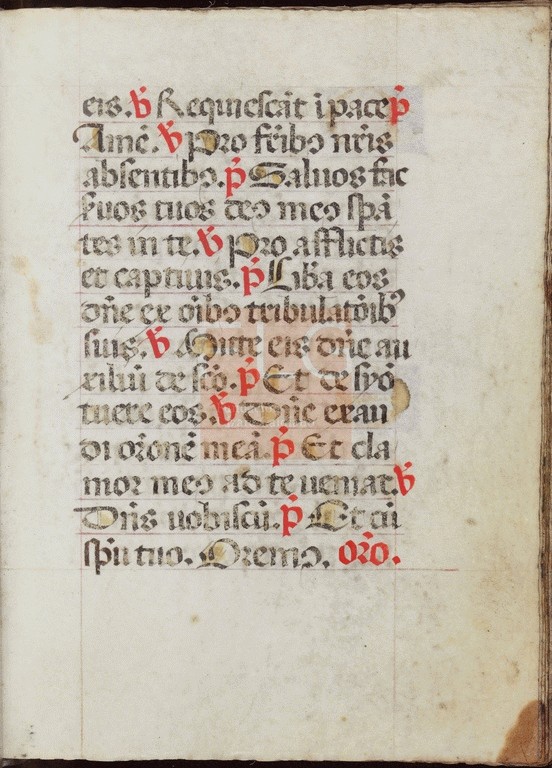 eis. ℣ Requiescāt ī pace ℟
Amē. ℣ Pro fr̄ibꝫ nr̄is
absentibꝫ. ℟ Saluos fac
s̄uos tuos deꝰ meꝰ spā
tes in te. ℣ Pro afflictis
et captiuis. ℟ Lib̄a eos
dn̄e ex oībꝫ tribulatōibꝰ
suis. ℣ Mitte eis dn̄e au
xiliū de scō. ℟ Et de syō
tuere eos. ℣ Dn̄e exau
di orōnē meā. ℟ Et cla
mor meꝰ ad te ueniat. ℣
Dn̄s uobiscū. ℟ Et cū
sp̄u tuo. Oremꝰ. orō.